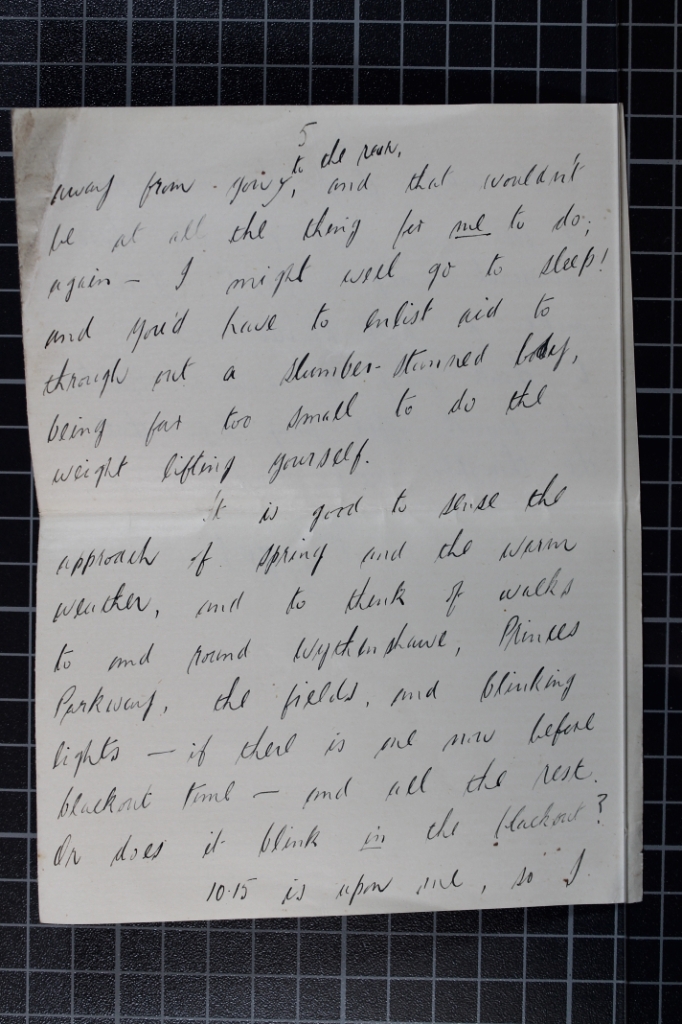 5
to the rear,
away from - you, and that wouldn't
be at all the thing for me to do;
again - I might well go to sleep!
and you'd have to enlist aid to
through out a slumber-stunned body,
being far too small to do the
weight lifting yourself.
It is good to sense the
approach of spring and the warm
weather, and to think of walks
to and round Wythenshawe, Princes
Parkway, the fields, and blinking
lights - if there is one now before
blackout time - and all the rest.
Or does it blink in the blackout?
10.15 is upon me, so I